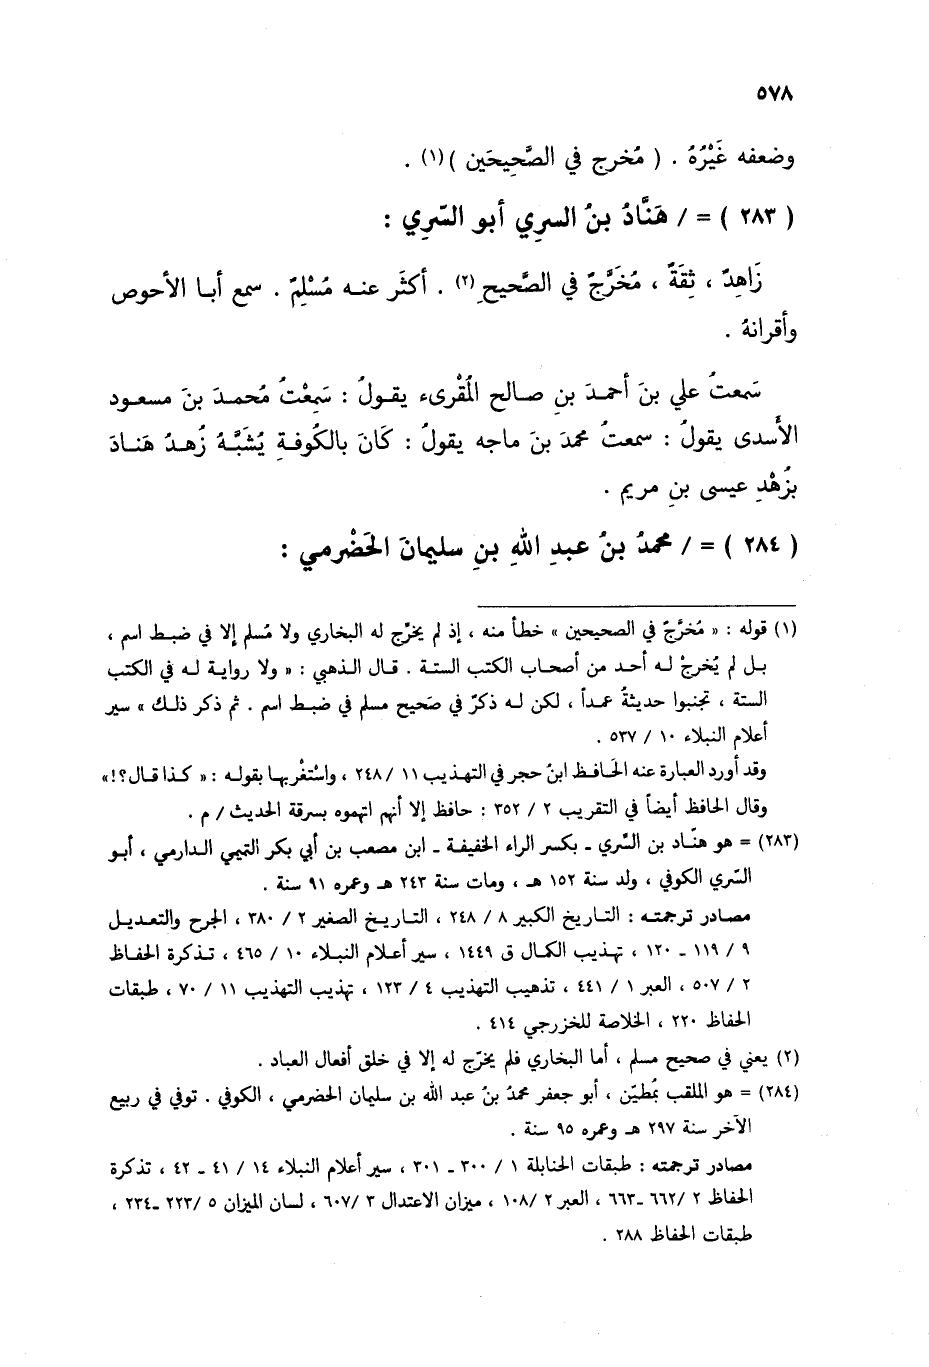 ٥٧٨
وضعفه غَيْرُهُ . ( مُخرج في الصَّحِيحَين )(١) .
( ٢٨٣ ) = / هَنَّادُ بنُ السري أبو السّرِي :
زَاهِدٌ ، ثِقَةٌ ، مُخَرَّجٌ في الصَّحيحِ (٢) . أكثَر عنه مُسْلِمٌ . سمع أبا الأحوص
وأقرانهُ .
سَمعتُ علي بنَ أحمدَ بنِ صالح المُقْرىء يقولُ : سَمِعْتُ مُحمدَ بنَ مسعود
الأَسدى يقولُ : سمعتُ محمدَ بنَ ماجه يقولُ : كَانَ بالكُوفةِ يُشَبَّهُ زُهدُ هَنادَ
بزُهْدِ عيسى بنِ مريم .
( ٢٨٤ ) = / محمدُ بنُ عبدِ اللهِ بنِ سليمانَ الحَضْرمي :
(١) قوله : « مُخرَّجٌ في الصحيحين » خطأ منه ، إذ لم يخرِّج له البخاري ولا مُسلم إلا في ضبط اسم ،
بل لم يُخرجْ له أحد من أصحاب الكتب الستة . قال الذهبي : « ولا رواية له في الكتب
الستة ، تجنبوا حديثهُ عمداً ، لكن له ذكرٌ في صَحيح مسلم في ضبط اسم . ثم ذكر ذلك » سير
أعلام النبلاء ١٠ / ٥٣٧ .
وقد أورد العبارة عنه الحَافظ ابنُ حجر في التهذيب ١١ /٢٤٨ ، واسْتغْربها بقوله : « كذا قال؟! »
وقال الحافظ أيضاً في التقريب ٢ / ٣٥٢ : حافظ إلا أنهم اتهموه بسرقة الحديث / م .
(٢٨٣) = هو هنّاد بن السَّري ـ بكسر الراء الخفيفة ـ ابن مصعب بن أبي بكر التميمي الدارمي ، أبو
السَّري الكوفي ، ولد سنة ١٥٢ هـ ، ومات سنة ٢٤٣ هـ وعمره ٩١ سنة .
مصادر ترجمته : التاريخ الكبير ٨ / ٢٤٨ ، التاريخ الصغير ٢ / ٣٨٠ ، الجرح والتعديل
٩ / ١١٩ ـ ١٢٠ ، تهذيب الكمال ق ١٤٤٩ ، سير أعلام النبلاء ١٠ / ٤٦٥ ، تذكرة الحفاظ
٢ / ٥٠٧ ، العبر ١ / ٤٤١ ، تذهيب التهذيب ٤ / ١٢٣ ، تهذيب التهذيب ١١ / ٧٠ ، طبقات
الحفاظ ٢٢٠ ، الخلاصة للخزرجي ٤١٤ .
(٢) يعني في صحيح مسلم ، أما البخاري فلم يخرّج له إلا في خلق أفعال العباد .
(٢٨٤) = هو الملقب بمُطيّن ، أبو جعفر محمدُ بنُ عبد الله بن سليمان الحضرمي ، الكوفي . توفي في ربيع
الآخر سنة ٢٩٧ هـ وعمره ٩٥ سنة .
مصادر ترجمته : طبقات الحنابلة ١ / ٣٠٠ ـ ٣٠١ ، سير أعلام النبلاء ١٤ / ٤١ ـ ٤٢ ، تذكرة
الحفاظ ٢ /٦٦٢ ـ٦٦٣ ، العبر ٢ /١٠٨ ، ميزان الاعتدال ٣ /٦٠٧ ، لسان الميزان ٥ /٢٢٣ ـ٢٣٤ ،
طبقات الحفاظ ٢٨٨ .